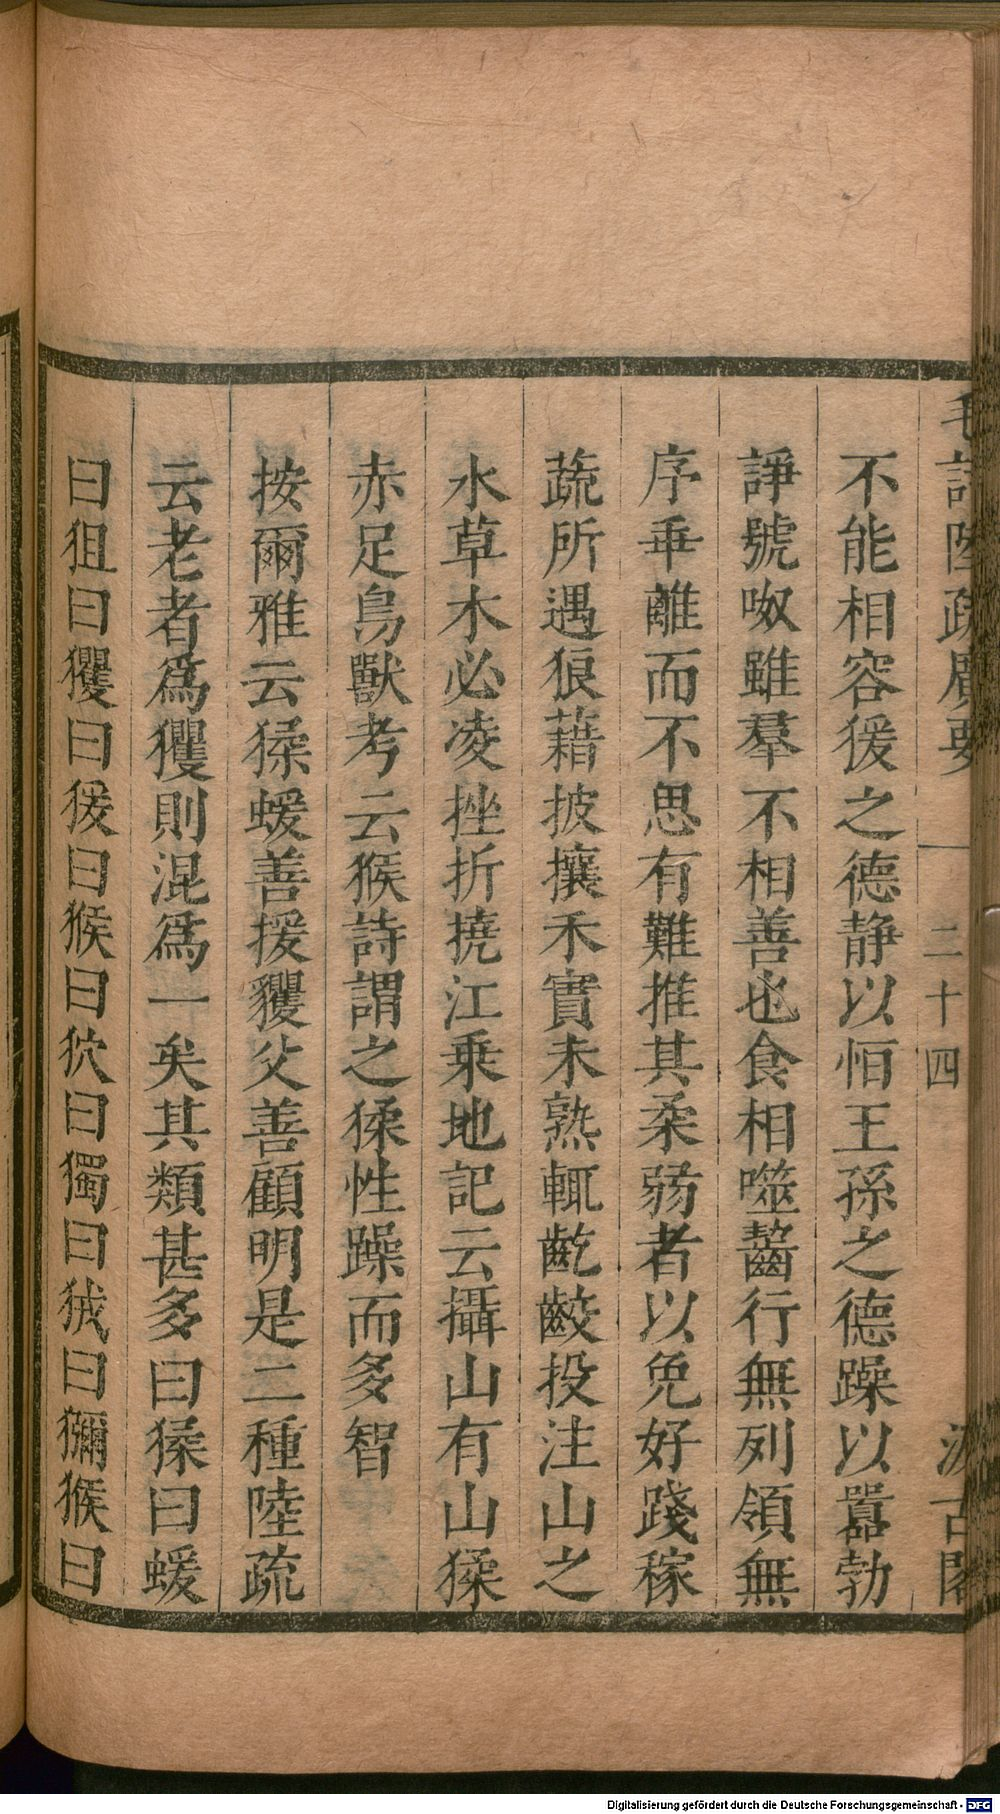 毛詩陸疏廣要
二十四
汲古閣
不能相容猨之德静以恒王孫之德躁以囂勃
諍號呶雖羣不相善也食相噬齧行無列領無
序乖離而不思有難推其柔弱者以免好踐稼
蔬所遇狼藉披攘禾實未熟輒齕齩投注山之
水草木必凌挫折撓江乗地記云攝山有山猱
赤足鳥獸考云猴詩謂之猱性躁而多智
按爾雅云猱蝯善援貜父善顧明是二種陸疏
云老者爲玃則混爲一矣其類甚多曰猱曰蝯
曰狙曰玃曰猨曰猴曰狖曰獨曰狨曰獼猴曰
Digitalisierung gefördert durch die Deutsche Forschungsgemeinschaft - DFG